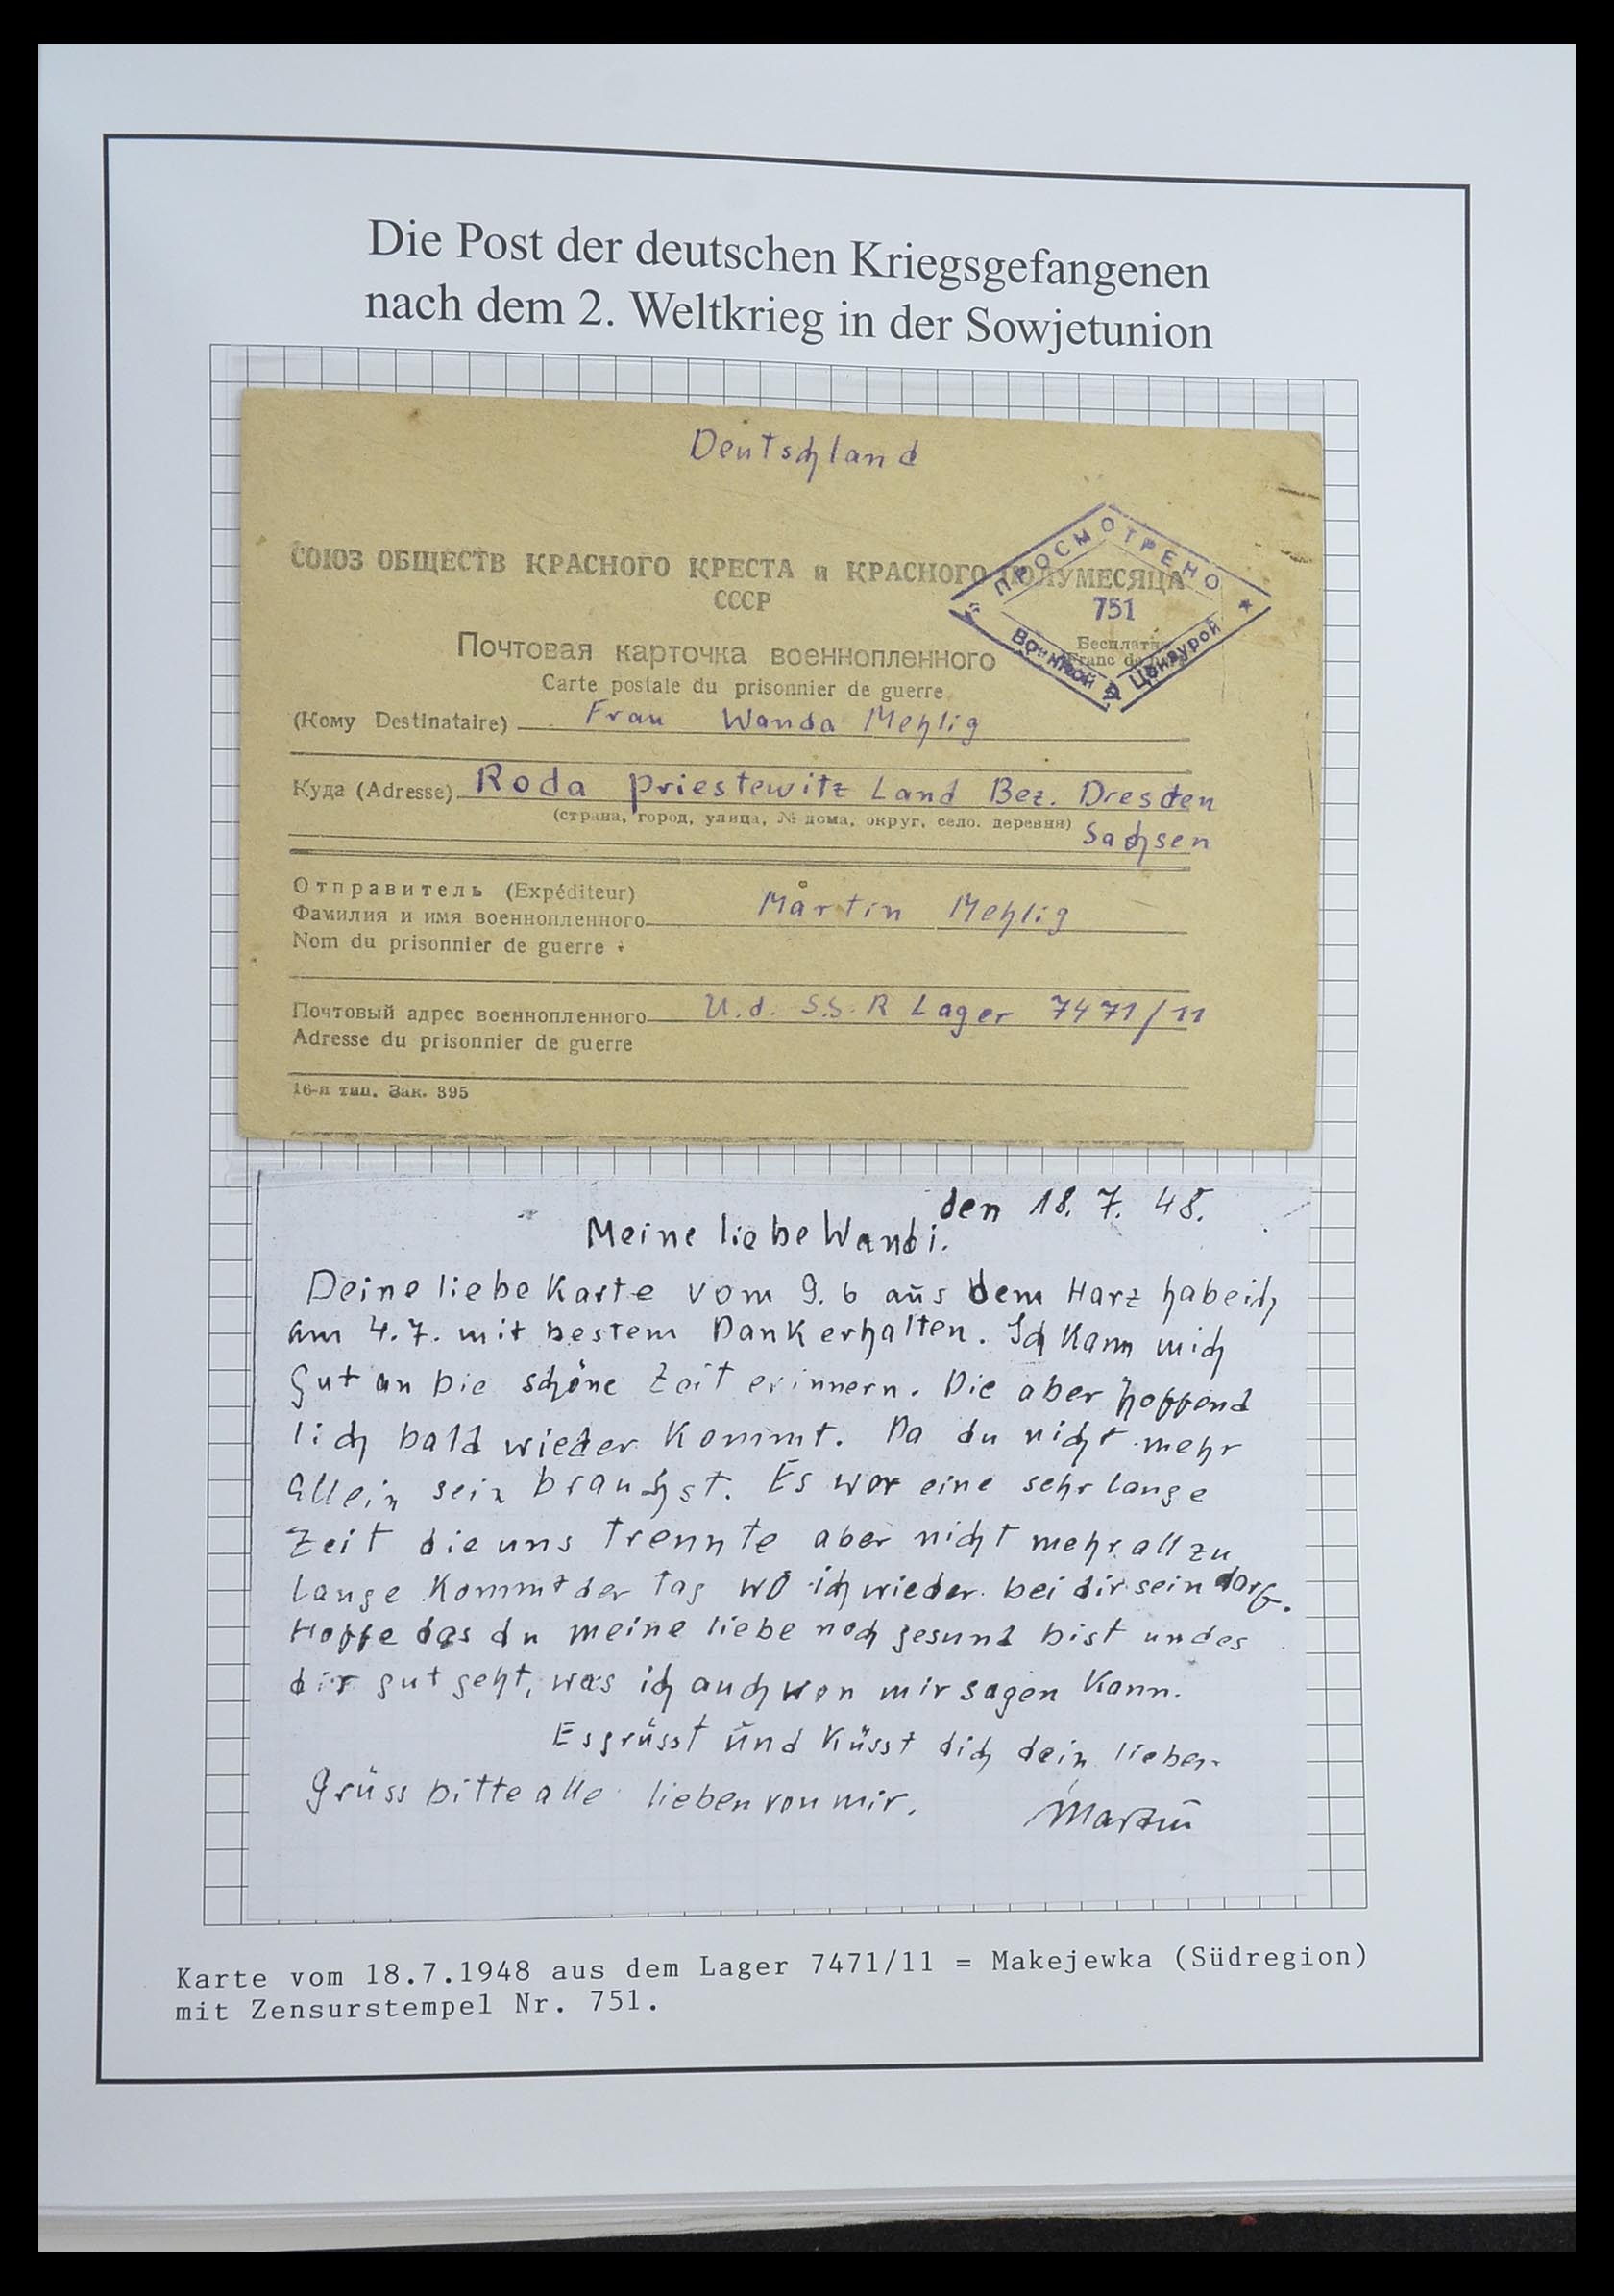 Die Post der deutschen Kriegsgefangenen
nach dem 2. Weltkrieg in der Sowjetunion
Deutschland
СОЮЗ ОБЩЕСТВ КРАСНОГО КРЕСТА и КРАСНОГО ПОЛУМЕСЯЦА
СССР
ПРОСМОТРЕНО
751
Военной Цензурой
Почтовая карточка военнопленного
Бесплатно
Franc de
Carte postale du prisonnier de guerre
(Кому Destinataire) Frau Wanda Mehlig
Куда (Adresse) Roda Priestewitz Land Bez. Dresden
(страна, город, улица, № дома, округ, село, деревня) Sachsen
Отправитель (Expéditeur)
Фамилия и имя военнопленного Martin Mehlig
Nom du prisonnier de guerre
Почтовый адрес военнопленного U.d.S.S.R Lager 7471/11
Adresse du prisonnier de guerre
16-я тип. Зак. 395
den 18. 7. 48.
Meine liebe Wandi.
Deine liebe Karte vom 9. 6 aus dem Harz habe ich
am 4.7. mit bestem Dank erhalten. Ich kann mich
gut an die schöne Zeit erinnern. Die aber hoffend
lich bald wieder kommt. Da du nicht mehr
allein sein brauchst. Es war eine sehr lange
Zeit die uns trennte aber nicht mehr all zu
lange kommt der Tag wo ich wieder bei dir sein darf.
Hoffe das du meine liebe noch gesund bist und es
dir gut geht, was ich auch von mir sagen kann.
Es grüsst und küsst dich dein lieber
Grüss bitte alle lieben von mir. Martin
Karte vom 18.7.1948 aus dem Lager 7471/11 = Makejewka (Südregion)
mit Zensurstempel Nr. 751.